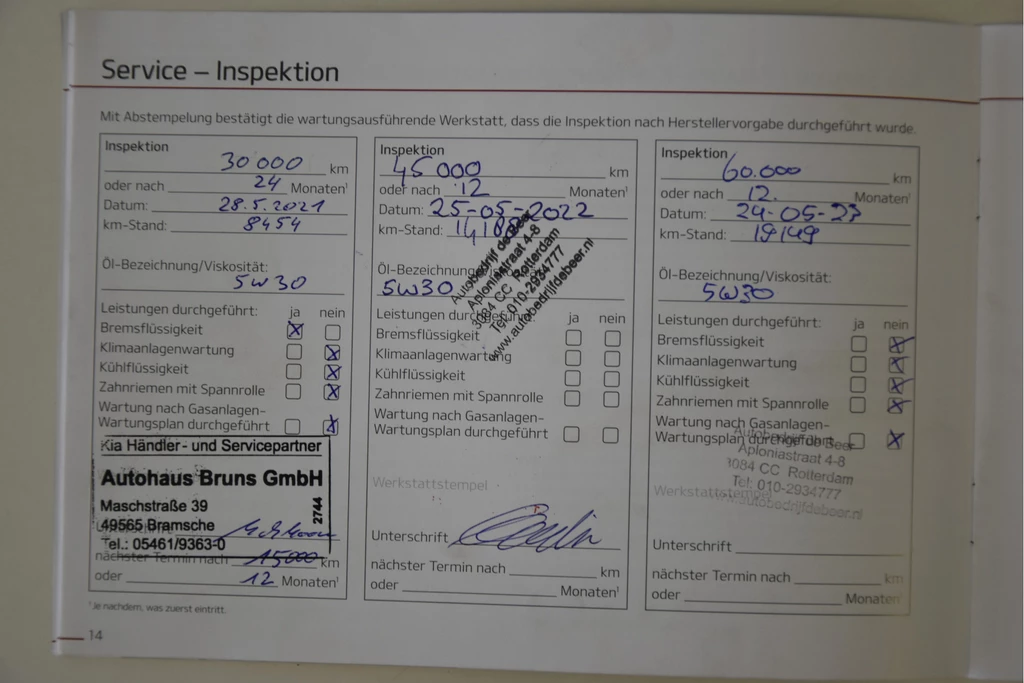 Service – Inspektion
Mit Abstempelung bestätigt die wartungsausführende Werkstatt, dass die Inspektion nach Herstellervorgabe durchgeführt wurde.
Inspektion
30 000 km
oder nach 24 Monaten¹
Datum: 28.5.2021
km-Stand: 8454
Öl-Bezeichnung/Viskosität:
5w30
Leistungen durchgeführt: ja nein
Bremsflüssigkeit
Klimaanlagenwartung
Kühlflüssigkeit
Zahnriemen mit Spannrolle
Wartung nach Gasanlagen-
Wartungsplan durchgeführt
Kia Händler - und Servicepartner
Autohaus Bruns GmbH
Maschstraße 39
49565 Bramsche
Tel.: 05461/9363-0
2744
nächster Termin nach 15000 km
oder 12 Monaten¹
Inspektion
45 000 km
oder nach 12 Monaten¹
Datum: 25-05-2022
km-Stand:
Öl-Bezeichnung
5W30
Autobedrijf de Beer
Aploniastraat 4-8
3084 CC Rotterdam
Tel: 010-2934777
www.autobedrijfdebeer.nl
Leistungen durchgeführt: ja nein
Bremsflüssigkeit
Klimaanlagenwartung
Kühlflüssigkeit
Zahnriemen mit Spannrolle
Wartung nach Gasanlagen-
Wartungsplan durchgeführt
Werkstattstempel
Unterschrift
nächster Termin nach km
oder Monaten¹
Inspektion
60.000 km
oder nach 12. Monaten¹
Datum: 24-05-23
km-Stand: 19149
Öl-Bezeichnung/Viskosität:
5W30
Leistungen durchgeführt: ja nein
Bremsflüssigkeit
Klimaanlagenwartung
Kühlflüssigkeit
Zahnriemen mit Spannrolle
Wartung nach Gasanlagen-
Wartungsplan durchgeführt
Autobedrijf de Beer
Aploniastraat 4-8
3084 CC Rotterdam
Tel: 010-2934777
www.autobedrijfdebeer.nl
Werkstattstempel
Unterschrift
nächster Termin nach km
oder Monaten
¹Je nachdem, was zuerst eintritt.
14